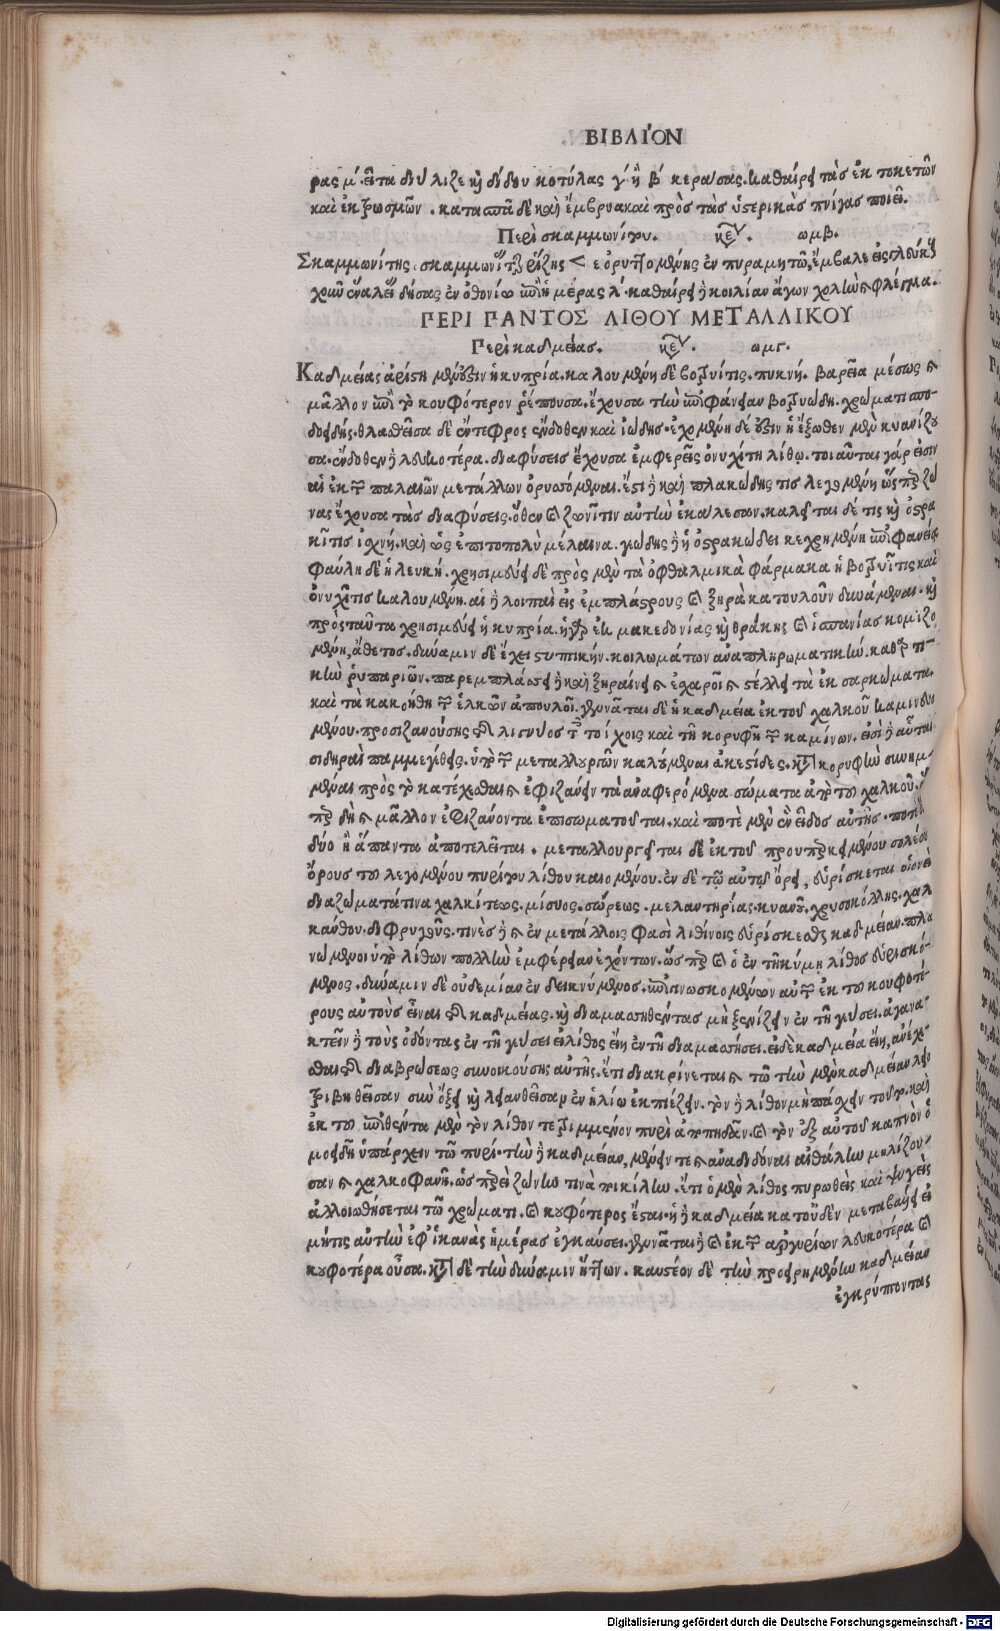 ΒΙΒΛΙΌΝ
ρας μ΄. εἶτα διύλιζε καὶ δίδου κοτύλας γ΄ ἢ β΄ κεράσας. καθαίρει τὰς ἐκ τοκετῶν
καὶ ἐκτρωσμῶν. κατασπᾶ δὲ καὶ ἔμβρυα καὶ πρὸς τὰς ὑστερικὰς πνίγας ποιεῖ.
Περὶ σκαμμωνίτου. κεφ. ωμβ.
Σκαμμωνίτης σκαμμωνίτου ῥίζης < ε ὀρυττομένης ἐν πυραμητῶ, ἔμβαλε εἰς γλεύκους
χοῦν ἐναλεῖ δήσας ἐν ὀθονίω ἐπὶ ἡμέρας λ΄. καθαίρει ἡ κοιλίαν ἄγων χολὴν καὶ φλέγμα.
ΠΕΡΙ ΠΑΝΤΟΣ ΛΙΘΟΥ ΜΕΤΑΛΛΙΚΟΥ
Περὶ καδμείας. κεφ. ωμγ.
Καδμείας ἀρίστη μέν ἐστιν ἡ κυπρία. καλουμένη δὲ βοτρυίτις. πυκνή. βαρεῖα μέσως καὶ
μᾶλλον ἐπὶ τὸ κουφότερον ῥέπουσα. ἔχουσα τὴν ἐπιφάνειαν βοτρυώδη. χρώματι σπο-
δοειδής. θλασθεῖσα δὲ ἔντεφρος ἔνδοθεν καὶ ἰώδης. ἐχομένη δέ ἐστιν ἡ ἔξωθεν μὲν κυανίζου
σα. ἔνδοθεν δὲ λευκοτέρα. διαφύσεις ἔχουσα ἐμφερεῖς ὀνυχίτη λίθω. τοιαῦται γάρ εἰσιν
αἱ ἐκ τῶν παλαιῶν μετάλλων ὀρυσσόμεναι. ἔστι δὲ καὶ πλακώδης τις λεγομένη ὥσπερ ζώ
νας ἔχουσα τὰς διαφύσεις. ὅθεν καὶ ζωνῖτιν αὐτὴν ἐκάλεσαν. καλεῖται δέ τις καὶ ὀστρα
κῖτις ἰχνή. καὶ ὡς ἐπιτοπολὺ μέλαινα. γώδης δὲ ἢ ὀστρακώδει κεχρημένη ἐπιφανεία.
φαύλη δὲ ἡ λευκή. χρησιμεύει δὲ πρὸς μὲν τὰ ὀφθαλμικὰ φάρμακα ἡ βοτρυῖτις καὶ
ὀνυχῖτις καλουμένη. αἱ δὲ λοιπαὶ εἰς ἐμπλάστρους καὶ ξηρὰ κατουλοῦν δυνάμεναι. καὶ
πρὸς ταῦτα χρησιμεύει ἡ κυπρία. ἡ γὰρ ἐκ μακεδονίας καὶ θράκης καὶ ἱσπανίας κομιζο
μένη, ἄθετος. δύναμιν δὲ ἔχει στυπτικήν. κοιλωμάτων ἀναπληρωματικήν. καθαρτι-
κὴν ῥυπαριῶν. παρεμπλάσσει δὲ καὶ ξηραίνει καὶ ἐσχαροῖ καὶ στέλλει τὰ ἐκσαρκώματα.
καὶ τὰ κακοήθη τῶν ἑλκῶν ἀπουλοῖ. γεννᾶται δὲ ἡ καδμεία ἐκ τοῦ χαλκοῦ καμινευο
μένου. προσιζανούσης τῆς λιγνύος τοῖς τοίχοις καὶ τῆ κορυφῆ τῶν καμίνων. εἰσὶ δὲ αὗται
σιδηραῖ παμμεγέθεις. ὑπὸ τῶν μεταλλουργῶν καλούμεναι ἀκεστίδες. κατὰ κορυφὴν συνημ-
μέναι πρὸς τὸ κατέχεσθαι καὶ ἐφιζάνειν τὰ ἀναφερόμενα σώματα ἀπὸ τοῦ χαλκοῦ. ἅ
περ δὴ καὶ μᾶλλον ἐφιζάνοντα ἐπισωματοῦται. καὶ ποτὲ μὲν ἓν εἶδος αὐτῆς. ποτὲ
δύο ἢ ἅπαντα ἀποτελεῖται. μεταλλουργεῖται δὲ ἐκ τοῦ προυπερκειμένου σολέου
ὄρους τοῦ λεγομένου πυρίτου λίθου καιομένου. ἐν δὲ τῶ αὐτῶ ὄρει, εὑρίσκεται οἱονεὶ
διαζώματά τινα χαλκίτεως. μίσυος. σώρεως. μελαντηρίας. κυανοῦ. χρυσοκόλλης. χαλ
κάνθου. διφρυγοῦς. τινὲς δὲ καὶ ἐν μετάλλοις φασὶ λιθίνοις εὑρίσκεσθαι καδμείαν. πλα
νώμενοι ὑπὸ λίθων πολλὴν ἐμφέρειαν ἐχόντων. ὥσπερ καὶ ὁ ἐν τῆ κύμη λίθος εὑρισκό-
μενος. δύναμιν δὲ οὐδεμίαν ἐνδεικνύμενος. ἐπιγινωσκομένων αὐτῶν ἐκ τοῦ κουφοτέ-
ρους αὐτοὺς εἶναι τῆς καδμείας. καὶ διαμασηθέντας μὴ ξενίζειν ἐν τῆ γεύσει. ἀγανα-
κτεῖν δὲ τοὺς ὀδόντας ἐν τῆ γεύσει εἰ λίθος εἴη ἐν τῆ διαμασήσει. εἰ δὲ καδμεία εἴη, ἀνέχε-
σθαι τῆς διαβρώσεως συνοικούσης αὐτῆς. ἔτι διακρίνεται καὶ τῶ τὴν μὲν καδμείαν λειο
τριβηθεῖσαν σὺν ὄξει καὶ λεανθεῖσαν ἐν ἡλίω ἐκπιέζειν. τὸν δὲ λίθον μὴ πάσχειν τοῦτο. καὶ
ἐκ τοῦ ἐπιθέντα μὲν τὸν λίθον τετριμμένον πυρὶ ἀποπηδᾶν. καὶ τὸν ἐξ αὐτοῦ καπνὸν ὁ
μοειδῆ ὑπάρχειν τῶ πυρί. τὴν δὲ καδμείαν, μένειν τε καὶ ἀναδιδόναι αἰθάλην μηλίζου-
σαν καὶ χαλκοφανῆ. ὡσπερεὶ ζώνην τινὰ ποικίλην. ἔτι ὁ μὲν λίθος πυρωθεὶς καὶ ψυγεὶς
ἀλλοιωθήσεται τῶ χρώματι. καὶ κουφότερος ἔσται. ἡ δὲ καδμεία κατ' οὐδὲν μεταβαίνει εἰ
μήτις αὐτὴν ἐφ' ἱκανὰς ἡμέρας ἐγκαύσει. γεννᾶται δὲ καὶ ἐκ τῶν ἀργυρίων λευκοτέρα καὶ
κουφοτέρα οὖσα. κατὰ δὲ τὴν δύναμιν ἥττων. καυστέον δὲ τὴν προειρημένην καδμείαν
ἐγκρύπτοντας
Digitalisierung gefördert durch die Deutsche Forschungsgemeinschaft - DFG